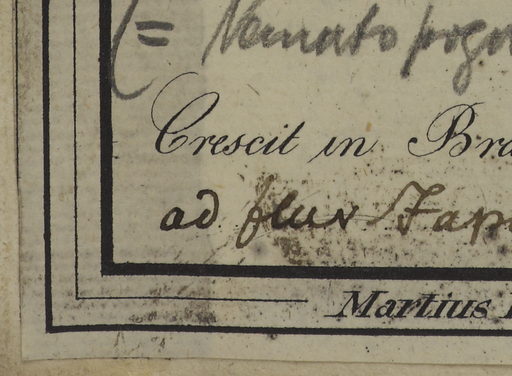 (= Nematopogon
Crescit in Bra
ad fluv Japu
Martius